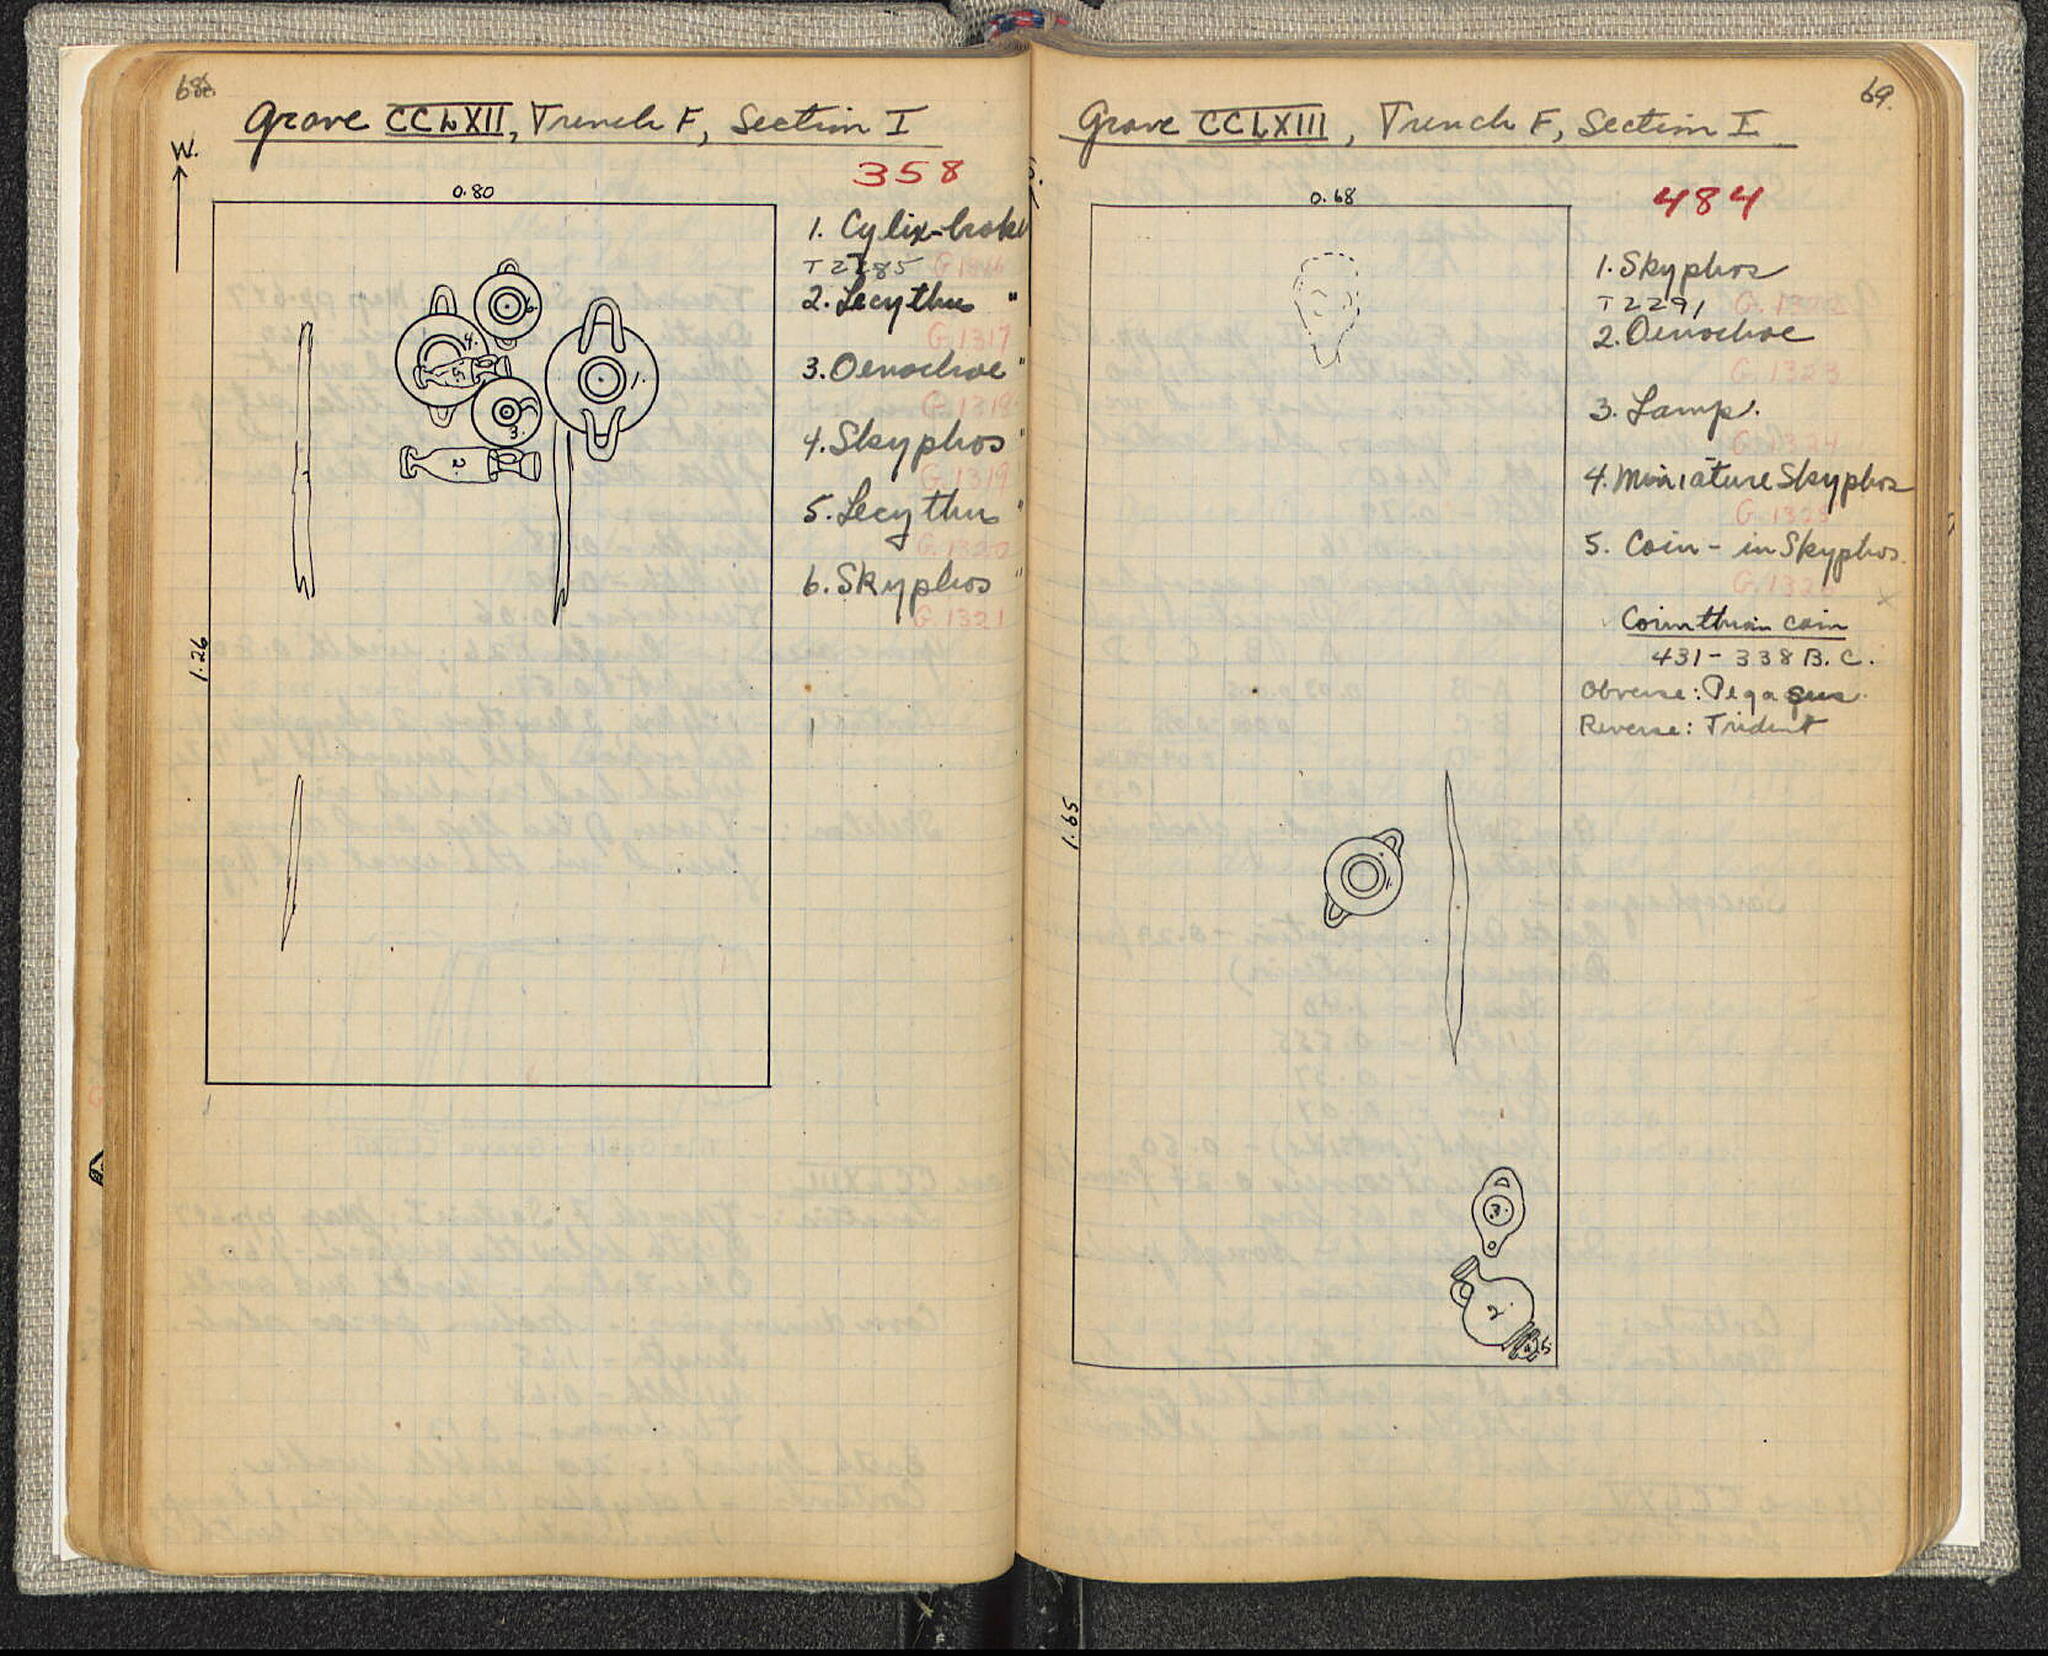 68.
Grave CCLXII, Trench F, Section I
W.
358
0.80
1. Cylix-broken
T 2285 G 1316
2. Lecythus "
G. 1317
3. Oenochoe "
G. 1318
4. Skyphos "
G. 1319
5. Lecythus "
G. 1320
6. Skyphos "
G. 1321
1.26
6.
4.
5.
1.
3.
2.
69.
Grave CCLXIII, Trench F, Section I
484
0.68
1. Skyphos
T 2291
2. Oenochoe
G. 1323
3. Lamp.
G. 1324
4. Miniature Skyphos
G. 1325
5. Coin - in Skyphos.
Corinthian coin
431 - 338 B.C.
Obverse: Pegasus.
Reverse: Trident
1.65
1.
3.
2.
5